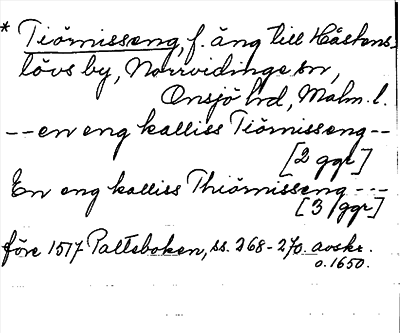 * Tiörnisseng, f. äng till Håstens-
lövs by, Norrvidinge sn,
Onsjö hd, Malm. l.
-- en eng kalliss Tiörnisseng --
[2 ggr]
En eng kalliss Thiörnisseng ---
[3 ggr]
före 1517 Palteboken, ss. 268-270. avskr.
o. 1650.